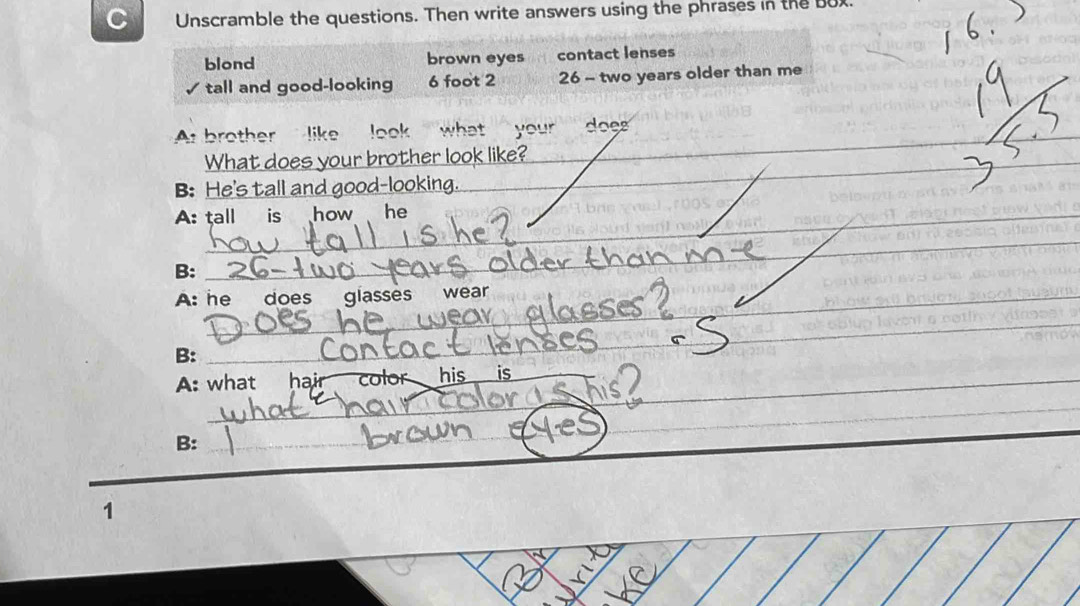 C Unscramble the questions. Then write answers using the phrases in the box.
16.5
blond brown eyes contact lenses
✓ tall and good-looking 6 foot 2 26 – two years older than me
19
A: brother like look what your does
5.5
35
What does your brother look like?
B: He's tall and good-looking.
A: tall is how he
how tall is he?
B: 26-two years older than me
A: he does glasses wear
Does he wear glasses?
B: contact lenses .5
A: what hair color his is
what hair color is his?
B: brown eyes
1